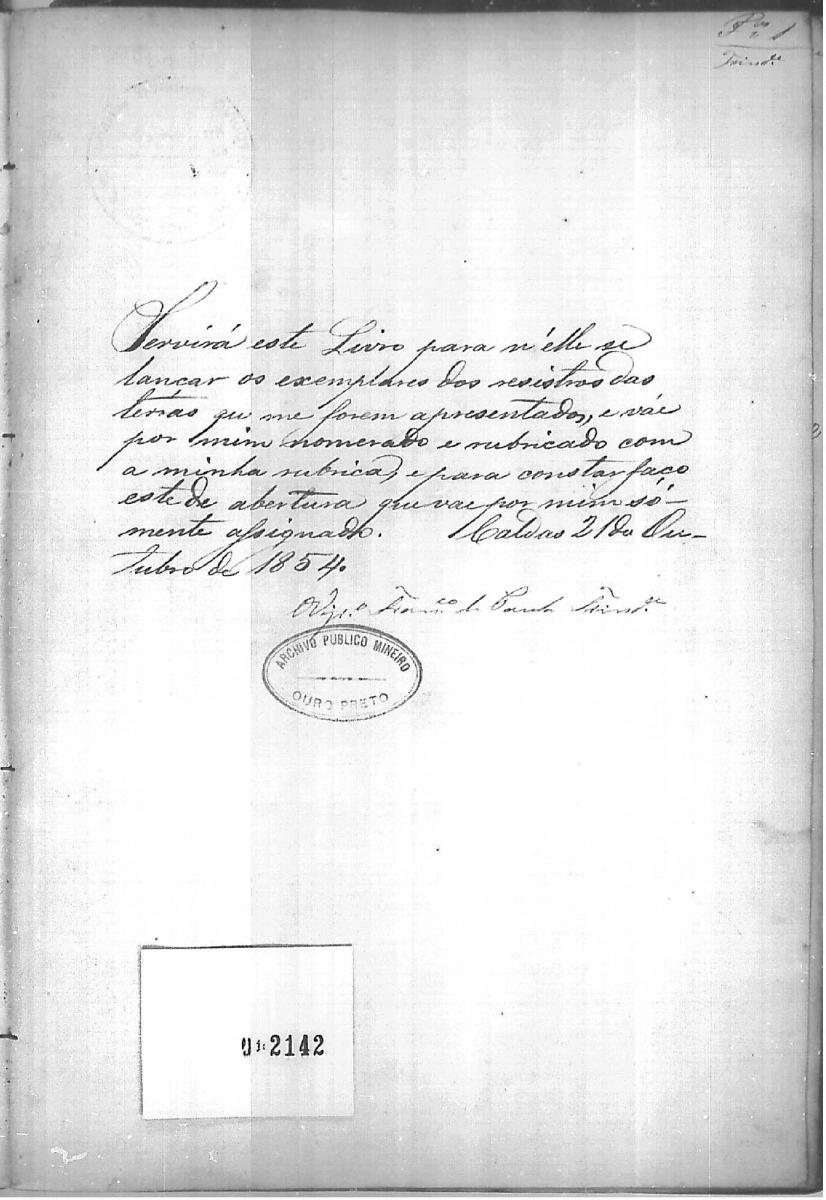 1
Trind.e
Servirá este Livro para n'élle se
lançar os exemplares dos resistros das
terras que me forem apresentados, e váe
por mim nomerado e rubricado com
a minha rubrica, e para constar faço
este de abertura que vae por mim só-
mente assignado. Caldas 21 de Ou-
tubro de 1854.
Vig.o Fran.co de Paula Trind.e
ARCHIVO PUBLICO MINEIRO
OURO PRETO
2142